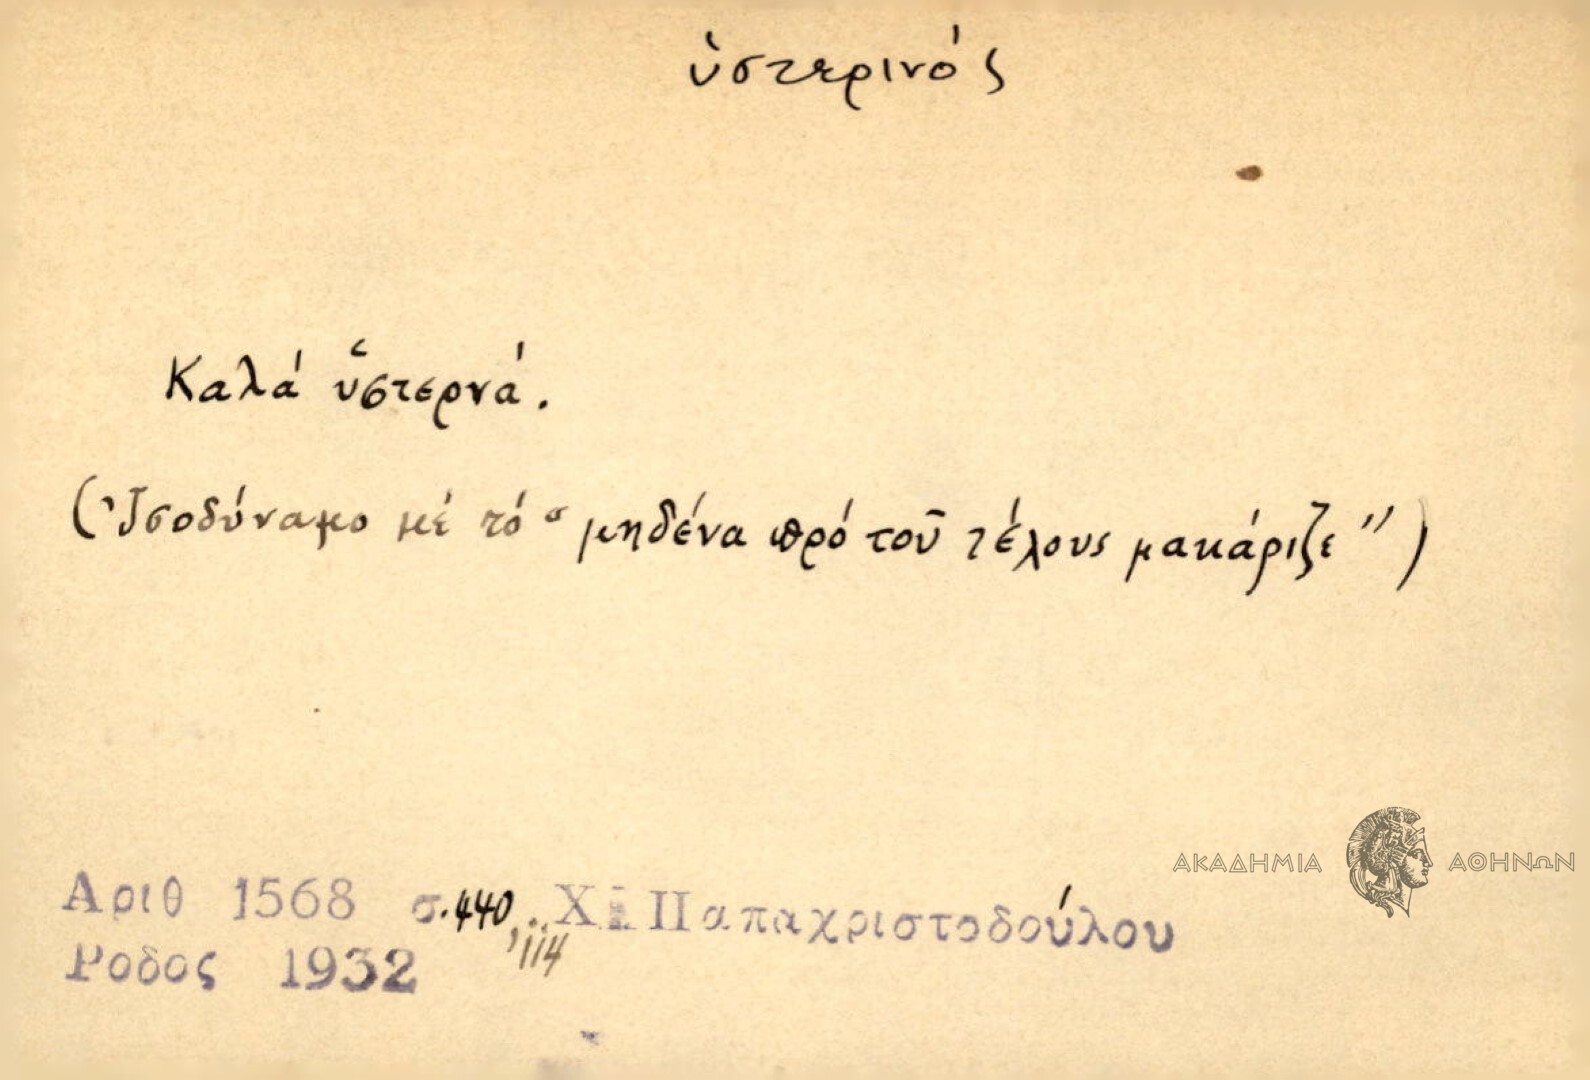 ὑστερινός
Καλά ὕστερνά.
(Ἰσοδύναμο μέ τό “μηδένα πρό τοῦ τέλους μακάριζε”)
ΑΚΑΔΗΜΙΑ ΑΘΗΝΩΝ
Αριθ 1568 σ.440, 114 Χ Παπαχριστοδούλου
Ροδος 1932